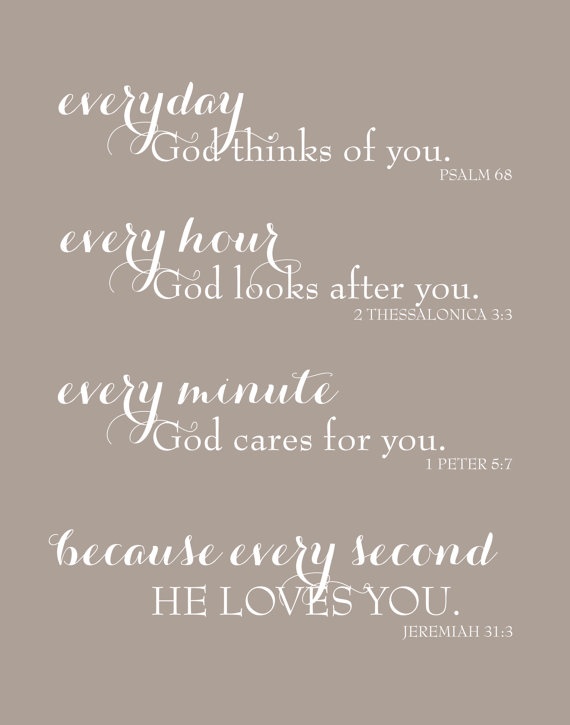 everyday
God thinks of you.
PSALM 68
every hour
God looks after you.
2 THESSALONICA 3:3
every minute
God cares for you.
1 PETER 5:7
because every second
HE LOVES YOU.
JEREMIAH 31:3